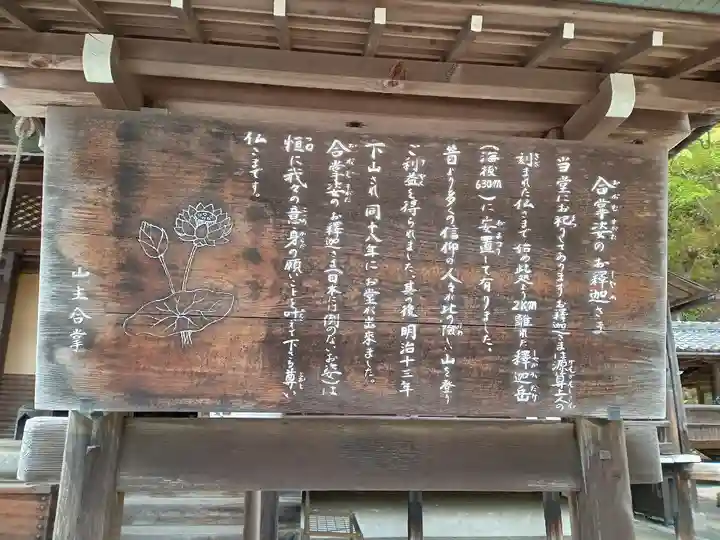 合掌姿のお釈迦さま
当堂にお祀りしてありますお釈迦さまは源算上人の
刻まれた仏さまで 始め此処より2km離れた釋迦岳
(海抜630m)に安置して有りました。
昔より多くの信仰の人々が此の険しい山を登り
ご利益を得られました。其の後 明治十三年
下山され 同十八年にお堂が出来ました。
合掌姿のお釋迦さま(日本には例のないお姿)は
恒に我々の身の願いごとを叶えて下さる尊い
仏さまです。
山主合掌